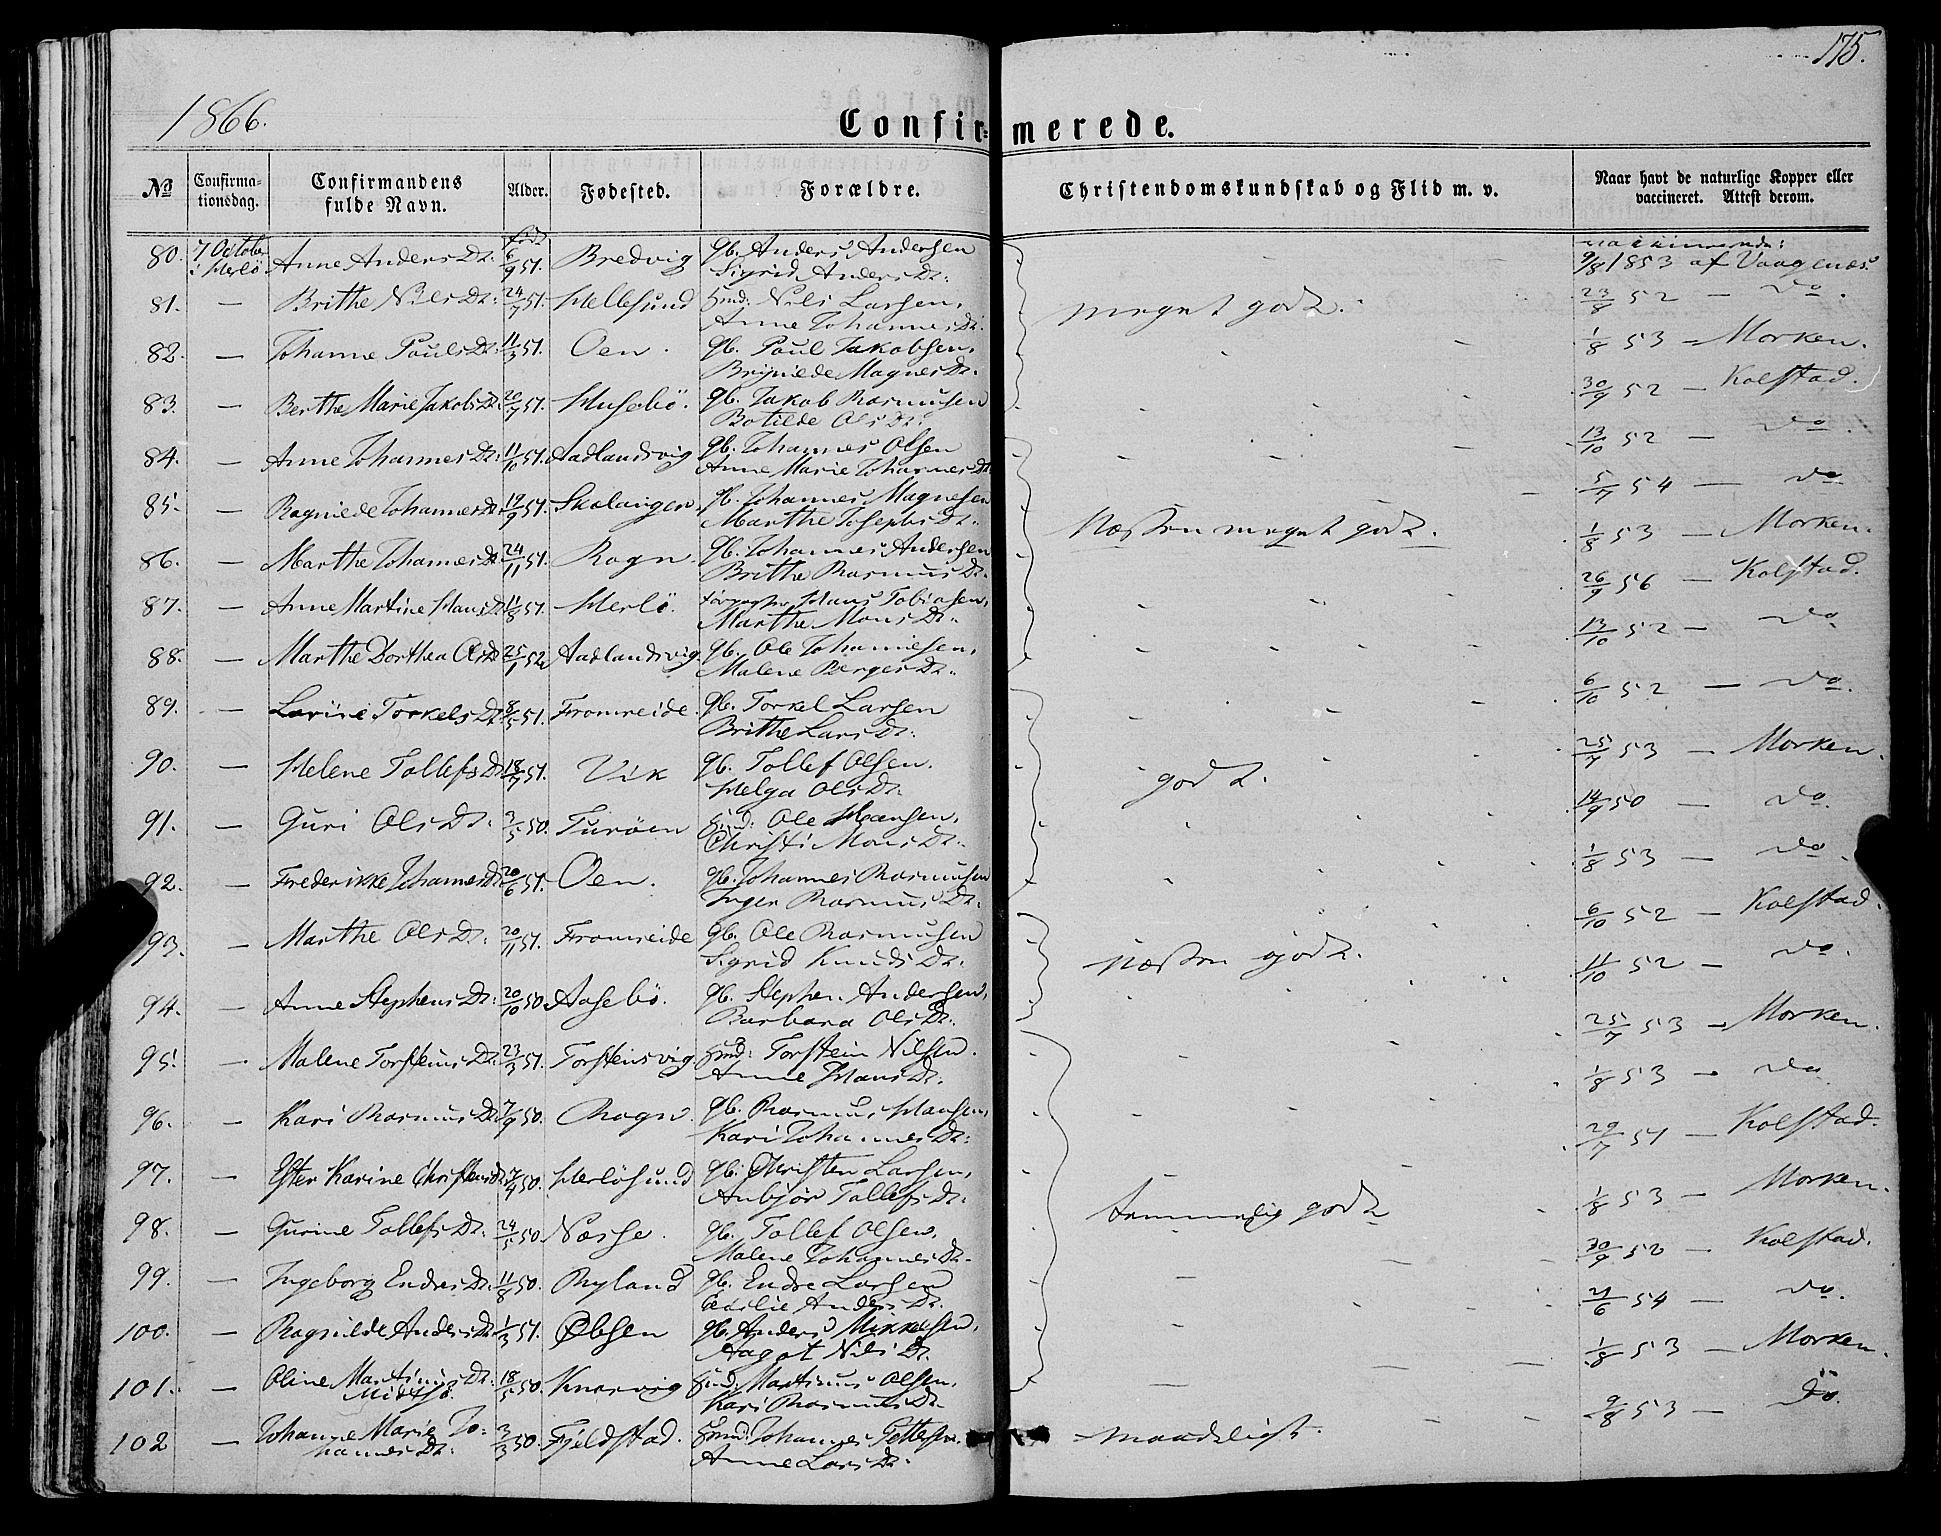 175.
1866.
Confirmerede.
No Confirmationsdag. Confirmandens fulde Navn. Alder. Fødested. Forældre. Christendomskundskab og Flid m. v. Naar havt de naturlige Kopper eller vaccineret. Attest derom.
80. 7 October i Herlö Anne AndersDr. født 6/9 51. Bredvig gb. Anders Andersen 9/8 1853 af Vaagenæs.
Sigrid AndersDr.
81. — Brithe NilsDr. 24/7 51. Hellesund Hmd. Nils Larsen, meget godt. 23/8 52 — do.
Anne JohannesDr.
82. — Johanne PoulsDr. 11/3 51. Oen. gb. Poul Jakobsen, 1/8 53 — Morken.
MagnesDr.
83. — Berthe Marie JakobsDr. 20/7 51. Husebö. gb. Jakob Rasmusen 30/9 52 — Kolstad.
Botilde OlsDr.
84. — Anne JohannesDr. 11/10 51. Aadlandsvig gb. Johannes Olsen 13/10 52 — do.
Anne Marie JohannesDr.
85. — Ragniede JohannesDr. 19/9 51. Skolangen gb. Johannes Magnesen 5/7 54 — do
Marthe JosephsDr.
Næsten meget godt.
86. — Marthe JohannesDr. 24/11 51. Rogn. gb. Johannes Andersen 1/8 53 — Morken.
Brithe RasmusDr.
87. — Anne Martine HansDr. 11/8 51. Herlö. Hans Tobiasen, 26/9 56 — Kolstad.
Marthe MonsDr.
88. — Marthe Dorthea OlsDr 25/1 52 Aadlandsvig. gb. Ole Johannesen, 13/10 52 — do
Malene BergesDr.
89. — Lovine TorkelsDr. 8/5 51. Fromreide. gb. Torkel Larsen 6/10 52 — do.
Brithe LarsDr.
90. — Helene TollefsDr. 18/7 51. Vik gb. Tollef Olsen. godt. 25/7 53 — Morken.
Helga OlsDr.
91. — Guri OlsDr. 2/5 50. Turöen Hmd. Ole Hansen, 14/9 50 — do.
Christi MonsDr.
92. — Frederikke JohannesDr. 20/6 51. Oen. gb. Johannes Rasmusen 1/8 53 — do.
Inger RasmusDr.
93. — Marthe OlsDr. 20/11 51. Fromreide gb. Ole Rasmusen 6/10 52 — Kolstad.
Sigrid KnudsDr.
Næsten godt.
94. — Anne StephensDr. 20/10 50. Aasebö. gb. Stephen Andersen, 11/10 52 — do.
Barbara OlsDr.
95. — Malene TorsteinsDr. 23/3 51. Torsteinsvig Hmd. Torstein Nilsen. 25/7 53 — Morken.
Anne HansDr.
96. — Kari RasmusDr. 7/9 50. Rogn. gb. Rasmus Hansen, 1/8 53 — do
Kari JohannesDr.
97. — Ester Karine ChristensDr. 50. Herlösund gb. Christen Larsen, 29/7 51 — Kolstad.
Anbjör TollefsDr.
98. — Gurine TollefsDr. 24/5 50. Nesse. gb. Tollef Olsen, temmelig godt 1/8 53 — Morken.
Malene JohannesDr.
99. — Ingeborg EndresDr. 11/8 50. Ryland gb. Endre Larsen 30/9 52 — Kolstad.
Cecilie AndersDr.
100. — Ragnilde AndersDr. 1/3 51. Øbsen gb. Anders Mikkelsen, 21/6 54 — do.
Aagot NilsDr.
101. — Oline MartinusDr. 18/5 50. Knarvig Hmd. Martinus Olsen, 1/8 53 — Morken.
Midtsö. Kari RasmusDr.
102 — Johanne Marie Jo- 3/3 50. Fjeldstad. Hmd. Johannes maadeligt. 9/8 53 — do.
hannesDr. Anne LarsDr.